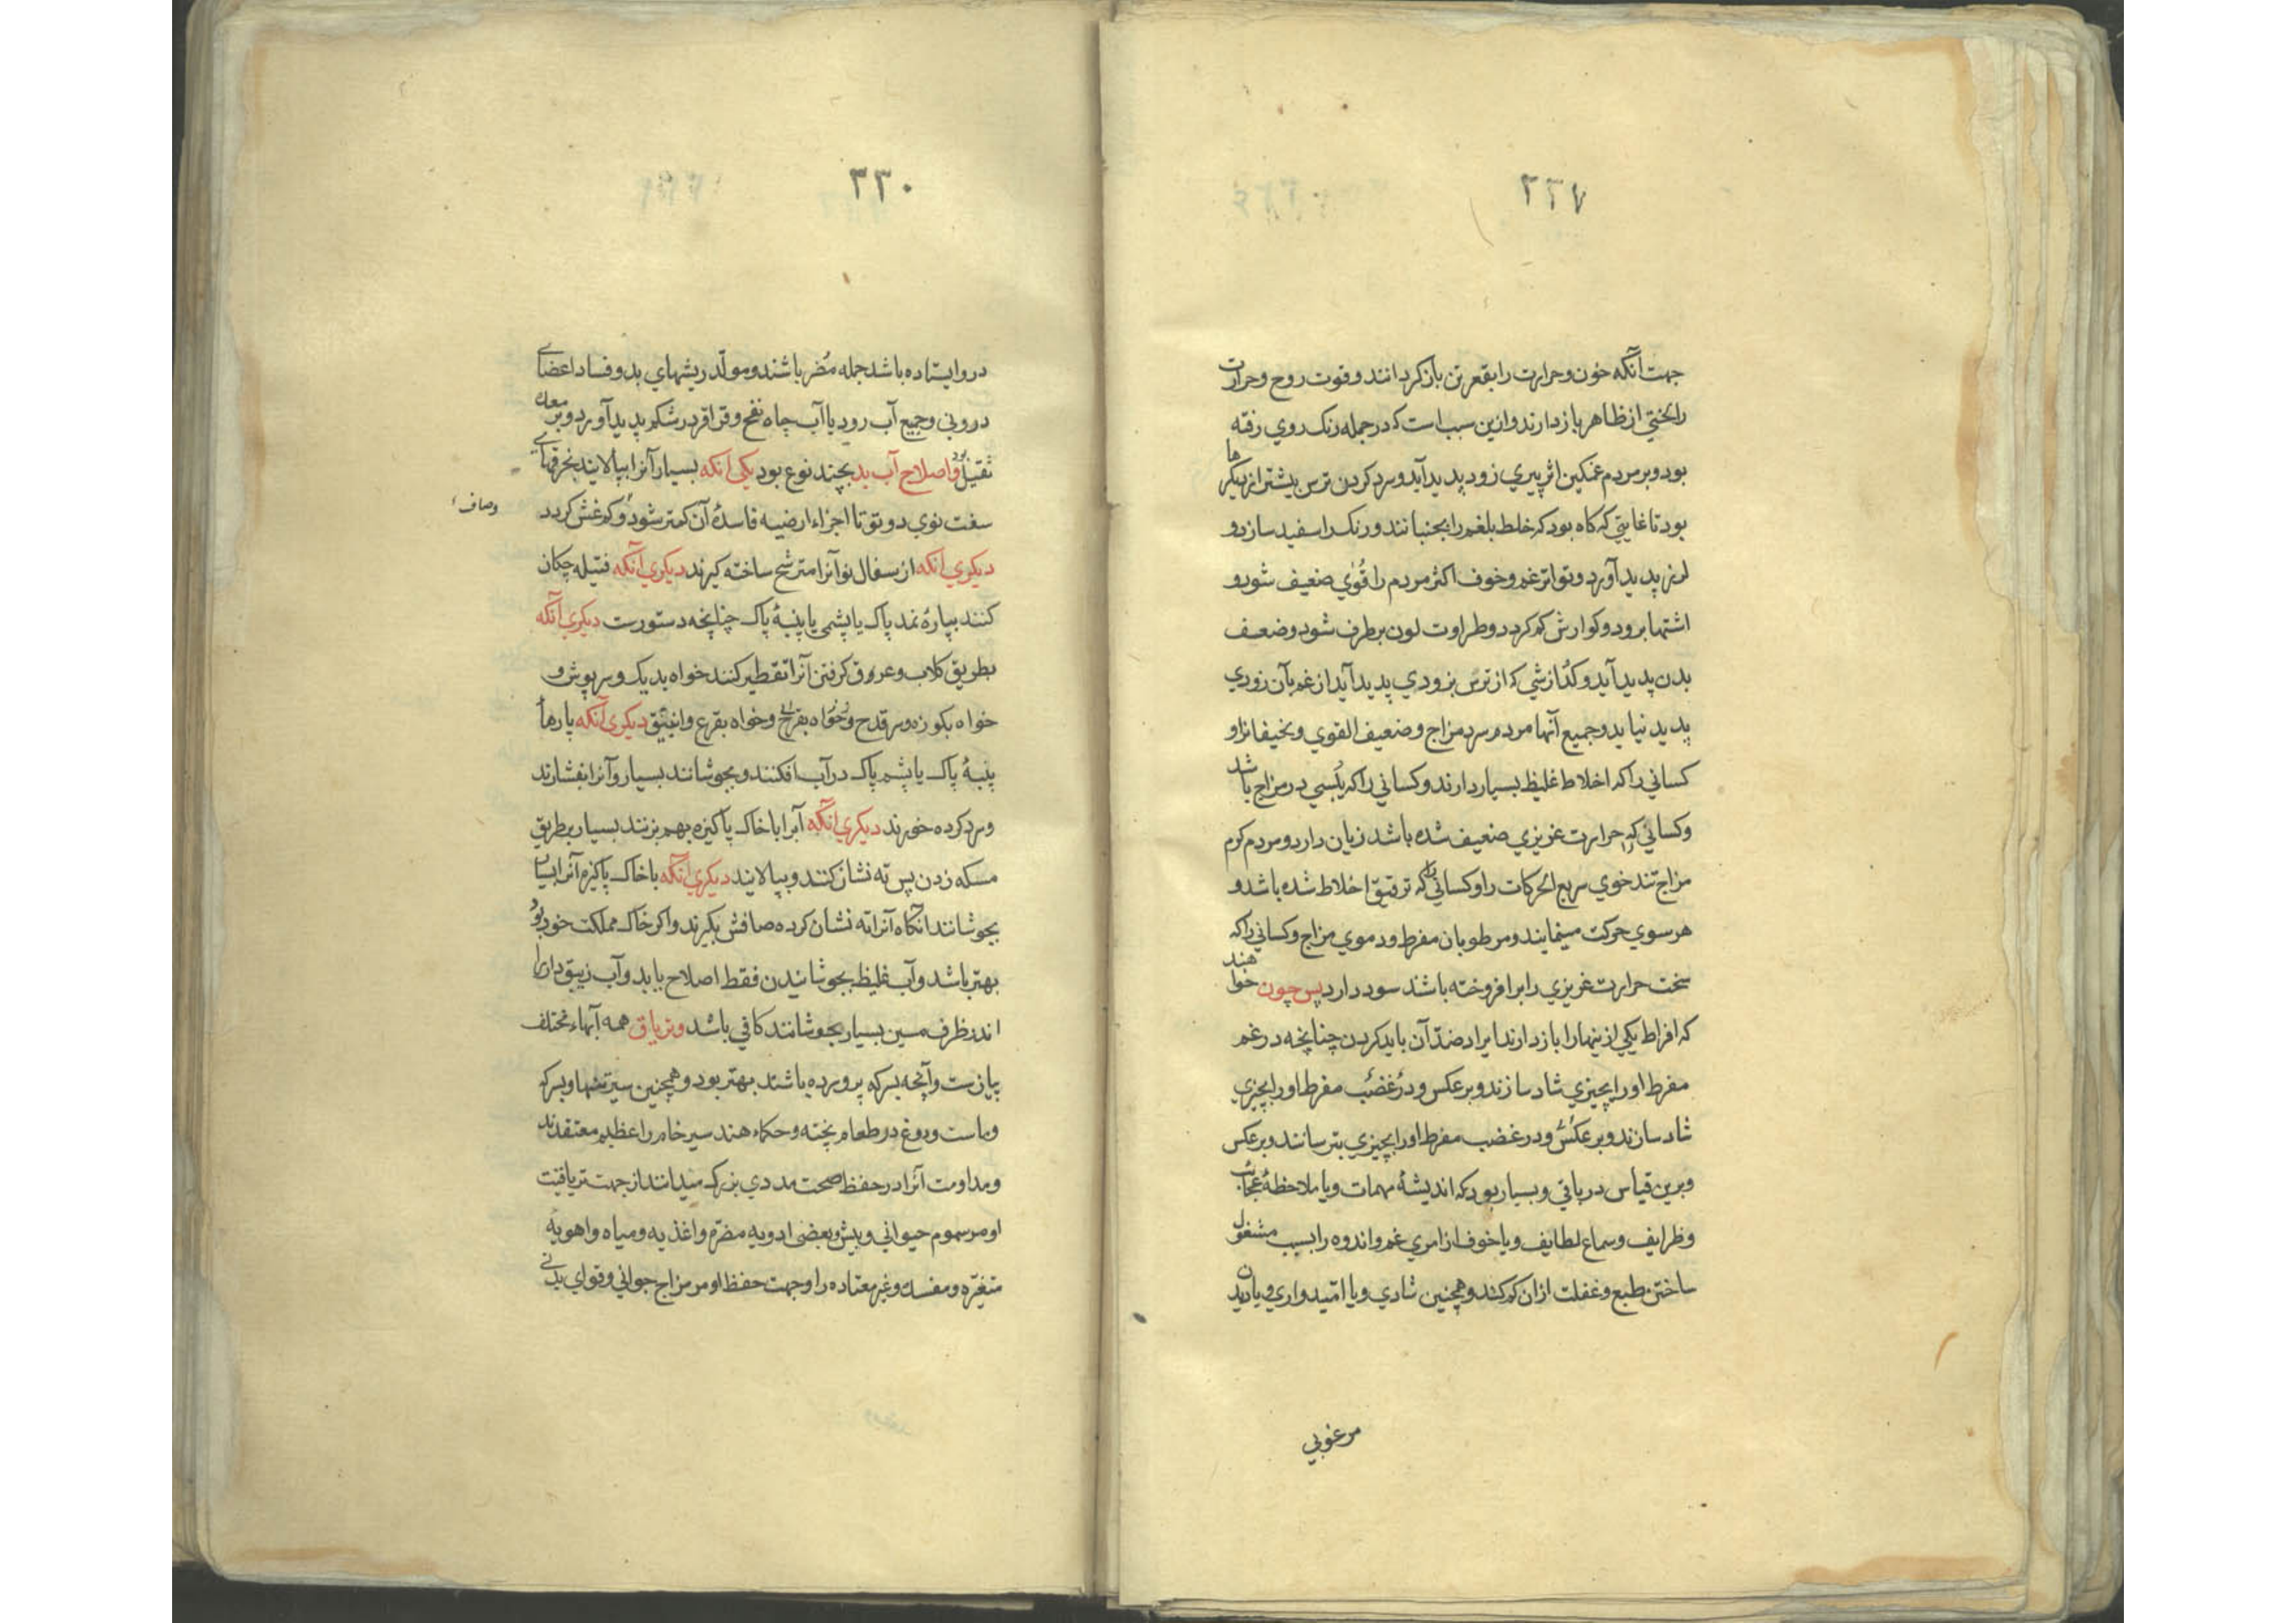 ۲۲۷
جهت آنکه خون و حرارت را بقعر تن باز کردانند و قوت روح و حرارت
را بختی از ظاهر باز دارند و ازین سبب است که در جمله رنک روی رفته
بود و بر مردم غمکین اثر پیری زود پدید آید و سرد کردن ترس بیشتر از دیکرها
بود تا غایتی که کاه بود که خلط بلغم را بجنباند و رنک را سفید سازد و
لرز پدید آورد و تواتر غم و خوف اکثر مردم را قُوٰی ضعیف شود و
اشتها برود و کوارش کم کردد و طراوت لون برطرف شود و ضعف
بدن پدید آید و کدازشی که از ترس بزودی پدید آید از غم بآن زودی
پدید نیاید و جمیع آنها مردم سرد مزاج و ضعیف القوی و نحیفانرا و
کسانی را که اخلاط غلیظ بسیار دارند و کسانی را که یُبسی در مزاج باشد
و کسانی را که حرارت غریزی ضعیف شده باشد زیان دارد و مردم کرم
مزاج تندخوی سریع الحرکات را و کسانی را که ترقیق اخلاط شده باشد و
هر سوی حرکت مینمایند و مرطوبان مفرط و دموی مزاج و کسانی را که
سخت حرارت غریزی را برافروخته باشند سود دارد پس چون خواهند
که افراط یکی از ینها را باز دارند ایراد ضدّ آن باید کردن چنانچه در غم
مفرط او را بچیزی شاد سازند و برعکس و در غضب مفرط او را بچیزی
شاد سازند و برعکس و در غضب مفرط او را بچیزی بترسانند و برعکس
و برین قیاس در باقی و بسیار بود که اندیشهٔ مهمات و یا ملاحظهٔ عجائب
و ظرایف و سماع لطایف و یا خوف از امری غم و اندوه را بسبب مشغول
ساختن طبع و غفلت ازان کم کند و همچنین شادی و یا امّیدواری و یا دیدن
مرغوبی
۲۳۰
درو ایستاده باشد جمله مُضر باشند و مولّد ریشهای بد و فساد اعضای
درونی و جمیع آب رود یا آب چاه نفخ و قراقر در شکم پدید آورد و بر معده
ثقیل بود و اصلاح آب بد بچند نوع بود یکی آنکه بسیار آنرا بپالایند بخرقهای
سفت نوی دو توی تا اجزاء ارضیه فاسدهٔ آن کمتر شود و کم غش کردد
وصاف
دیکری آنکه از سفال نو آنرا مترشح ساخته کیرند دیکری آنکه فتیله چکان
کنند بپارهٔ نمد پاک یا پشمی یا پنبهٔ پاک چنانچه دستورست دیکری آنکه
بطریق کلاب و عروق کرفتن آنرا تقطیر کنند خواه بدیک و سرپوش و
خواه بکوزه و سر قدح و خواه بقرع و انبیق دیکری آنکه پارهٔ
پنبهٔ پاک یا پشم پاک در آب افکنند و بجوشانند بسیار و آنرا بفشارند
و سرد کرده خورند دیکری آنکه آبرا با خاک پاکیزه بهم بزنند بسیار بطریق
مسکه زدن پس ته نشان کنند و بپالایند دیکری آنکه با خاک پاکیزه آنرا بسیار
بجوشانند آنکاه آنرا ته نشان کرده صافش بکیرند و اکر خاک مملکت خود بود
بهتر باشد و آب غلیظ بجوشانیدن فقط اصلاح یابد و آب زیبق دار را
اندر ظرف مسین بسیار بجوشانند کافی باشد و تریاق همه آبهاء مختلف
پیازست و آنچه بسرکه پرورده باشند بهتر بود و همچنین سیر تنها و بسرکه
و ماست و دوغ در طعام پخته و حکماء هند سیر خام را عظیم معتقدند
و مداومت آنرا در حفظ صحت مددی بزرک میدانند از جهت تریاقیت
او مر سموم حیوانی و بیش و بعضی ادویه مضرّه و اغذیه و میاه و اهویه
متغیّره و مفسده و غیر معتاده را و جهت حفظ او مر مزاج جوانی و قوای بدنی